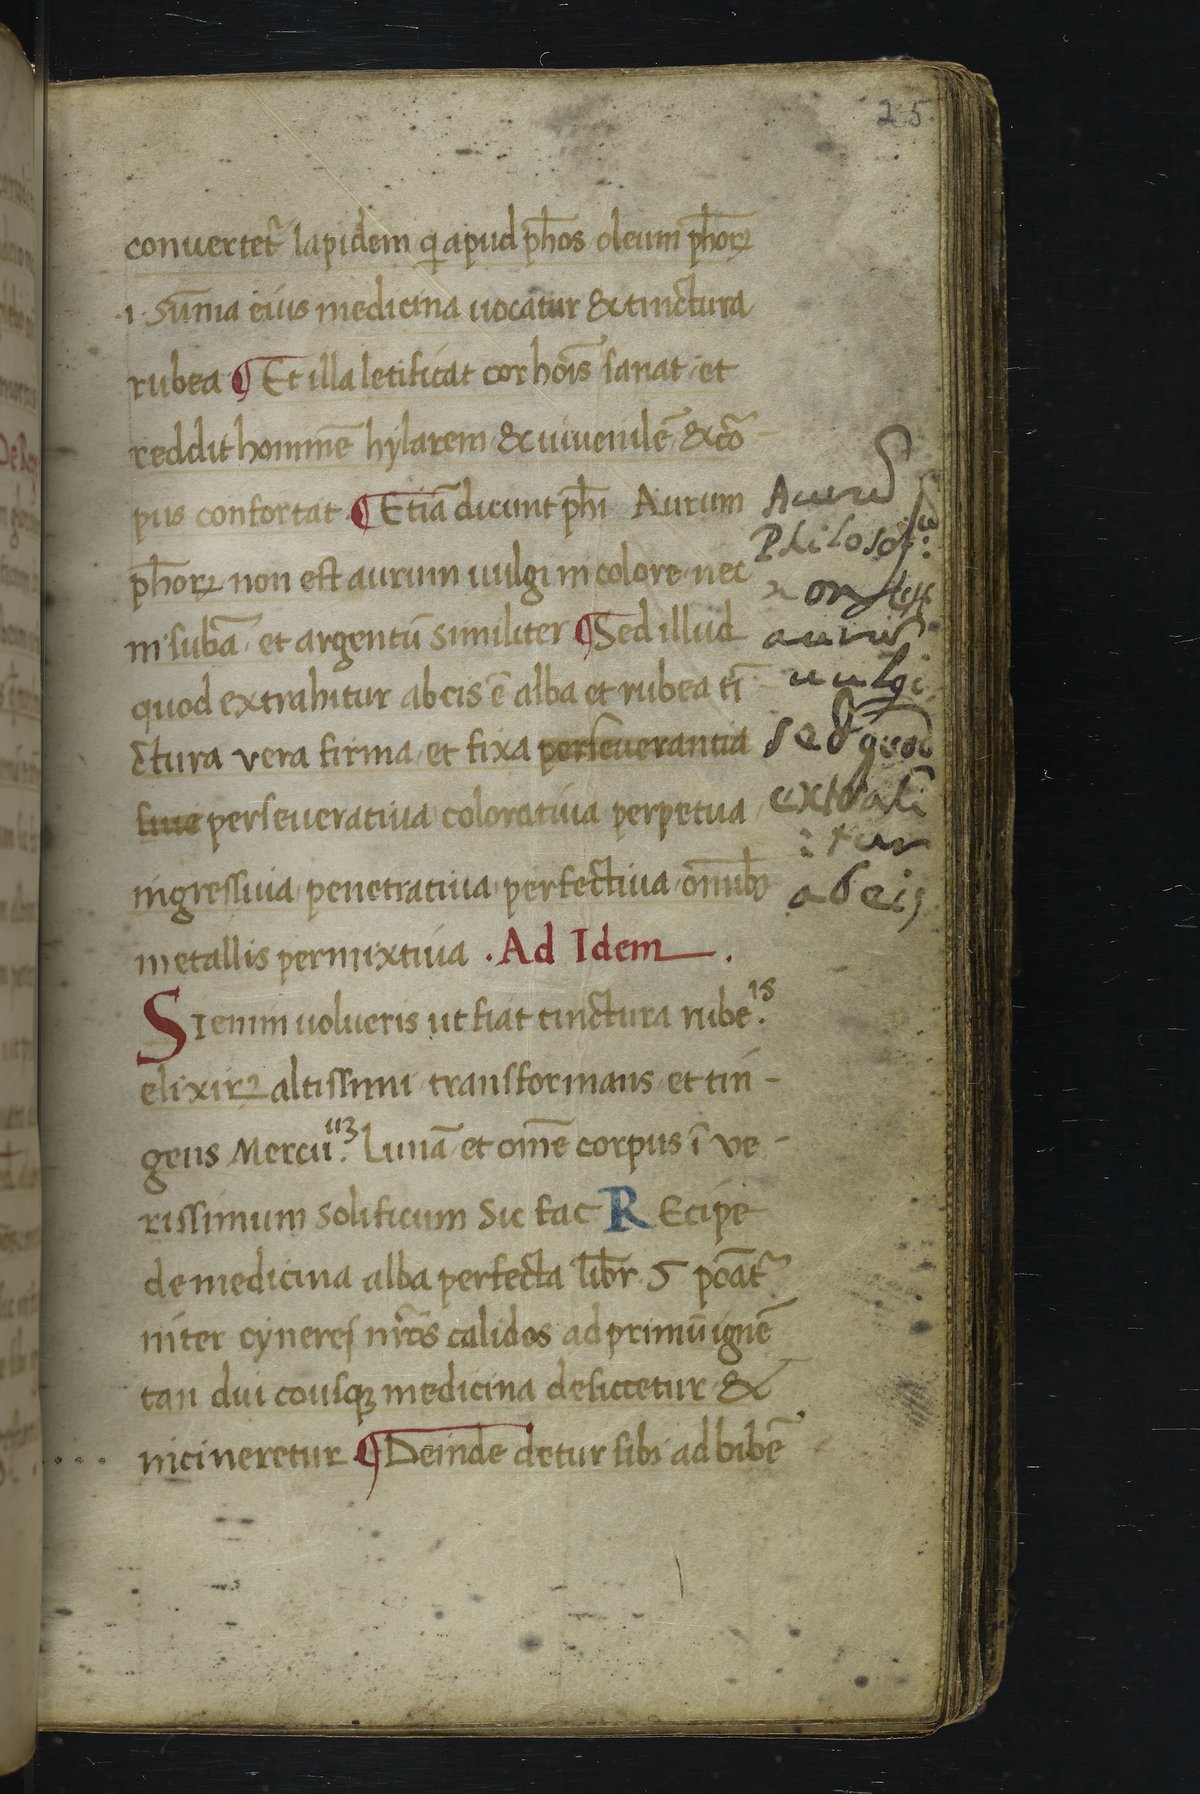 25
conuertet᷑ lapidem q̄ apud ph̄os oleum ph̄oꝝ
.i. Sum̄a eius medicina uocatur & tinctura
rubea ¶ Et illa letificat cor hoīs sanat et
reddit hominē hylarem & iuuenilē & cō-
pus confortat ¶ Etiā dicunt ph̄i Aurum
ph̄oꝝ non est aurum uulgi in colore nec
in subā et argentū similiter ¶ Sed illud
quod extrahitur ab eis ē alba et rubea tī-
ctura vera firma et fixa perseuerantia
siue perseueratiua coloratiua perpetua
ingressiuia penetratiua perfectiua omībꝫ
metallis permixtiua . Ad Idem .
SI enim uolueris ut fiat tinctura rube is.
elixirꝝ altissimi transformans et tin-
gens Mercu 113. Lunā et omē corpus ī ve-
rissimum solificum Sic fac REcipe
de medicina alba perfecta libr. 5 ponat᷑
inter cyneres nr̄os calidos ad primū ignē
tan diu eousqꝫ medicina desiccetur &
incineretur ¶ Deinde detur sibi ad bibē
Aurum
Philosof:
non est
aurum
uulgi
sed quod
extrahi
:tur
ab eis